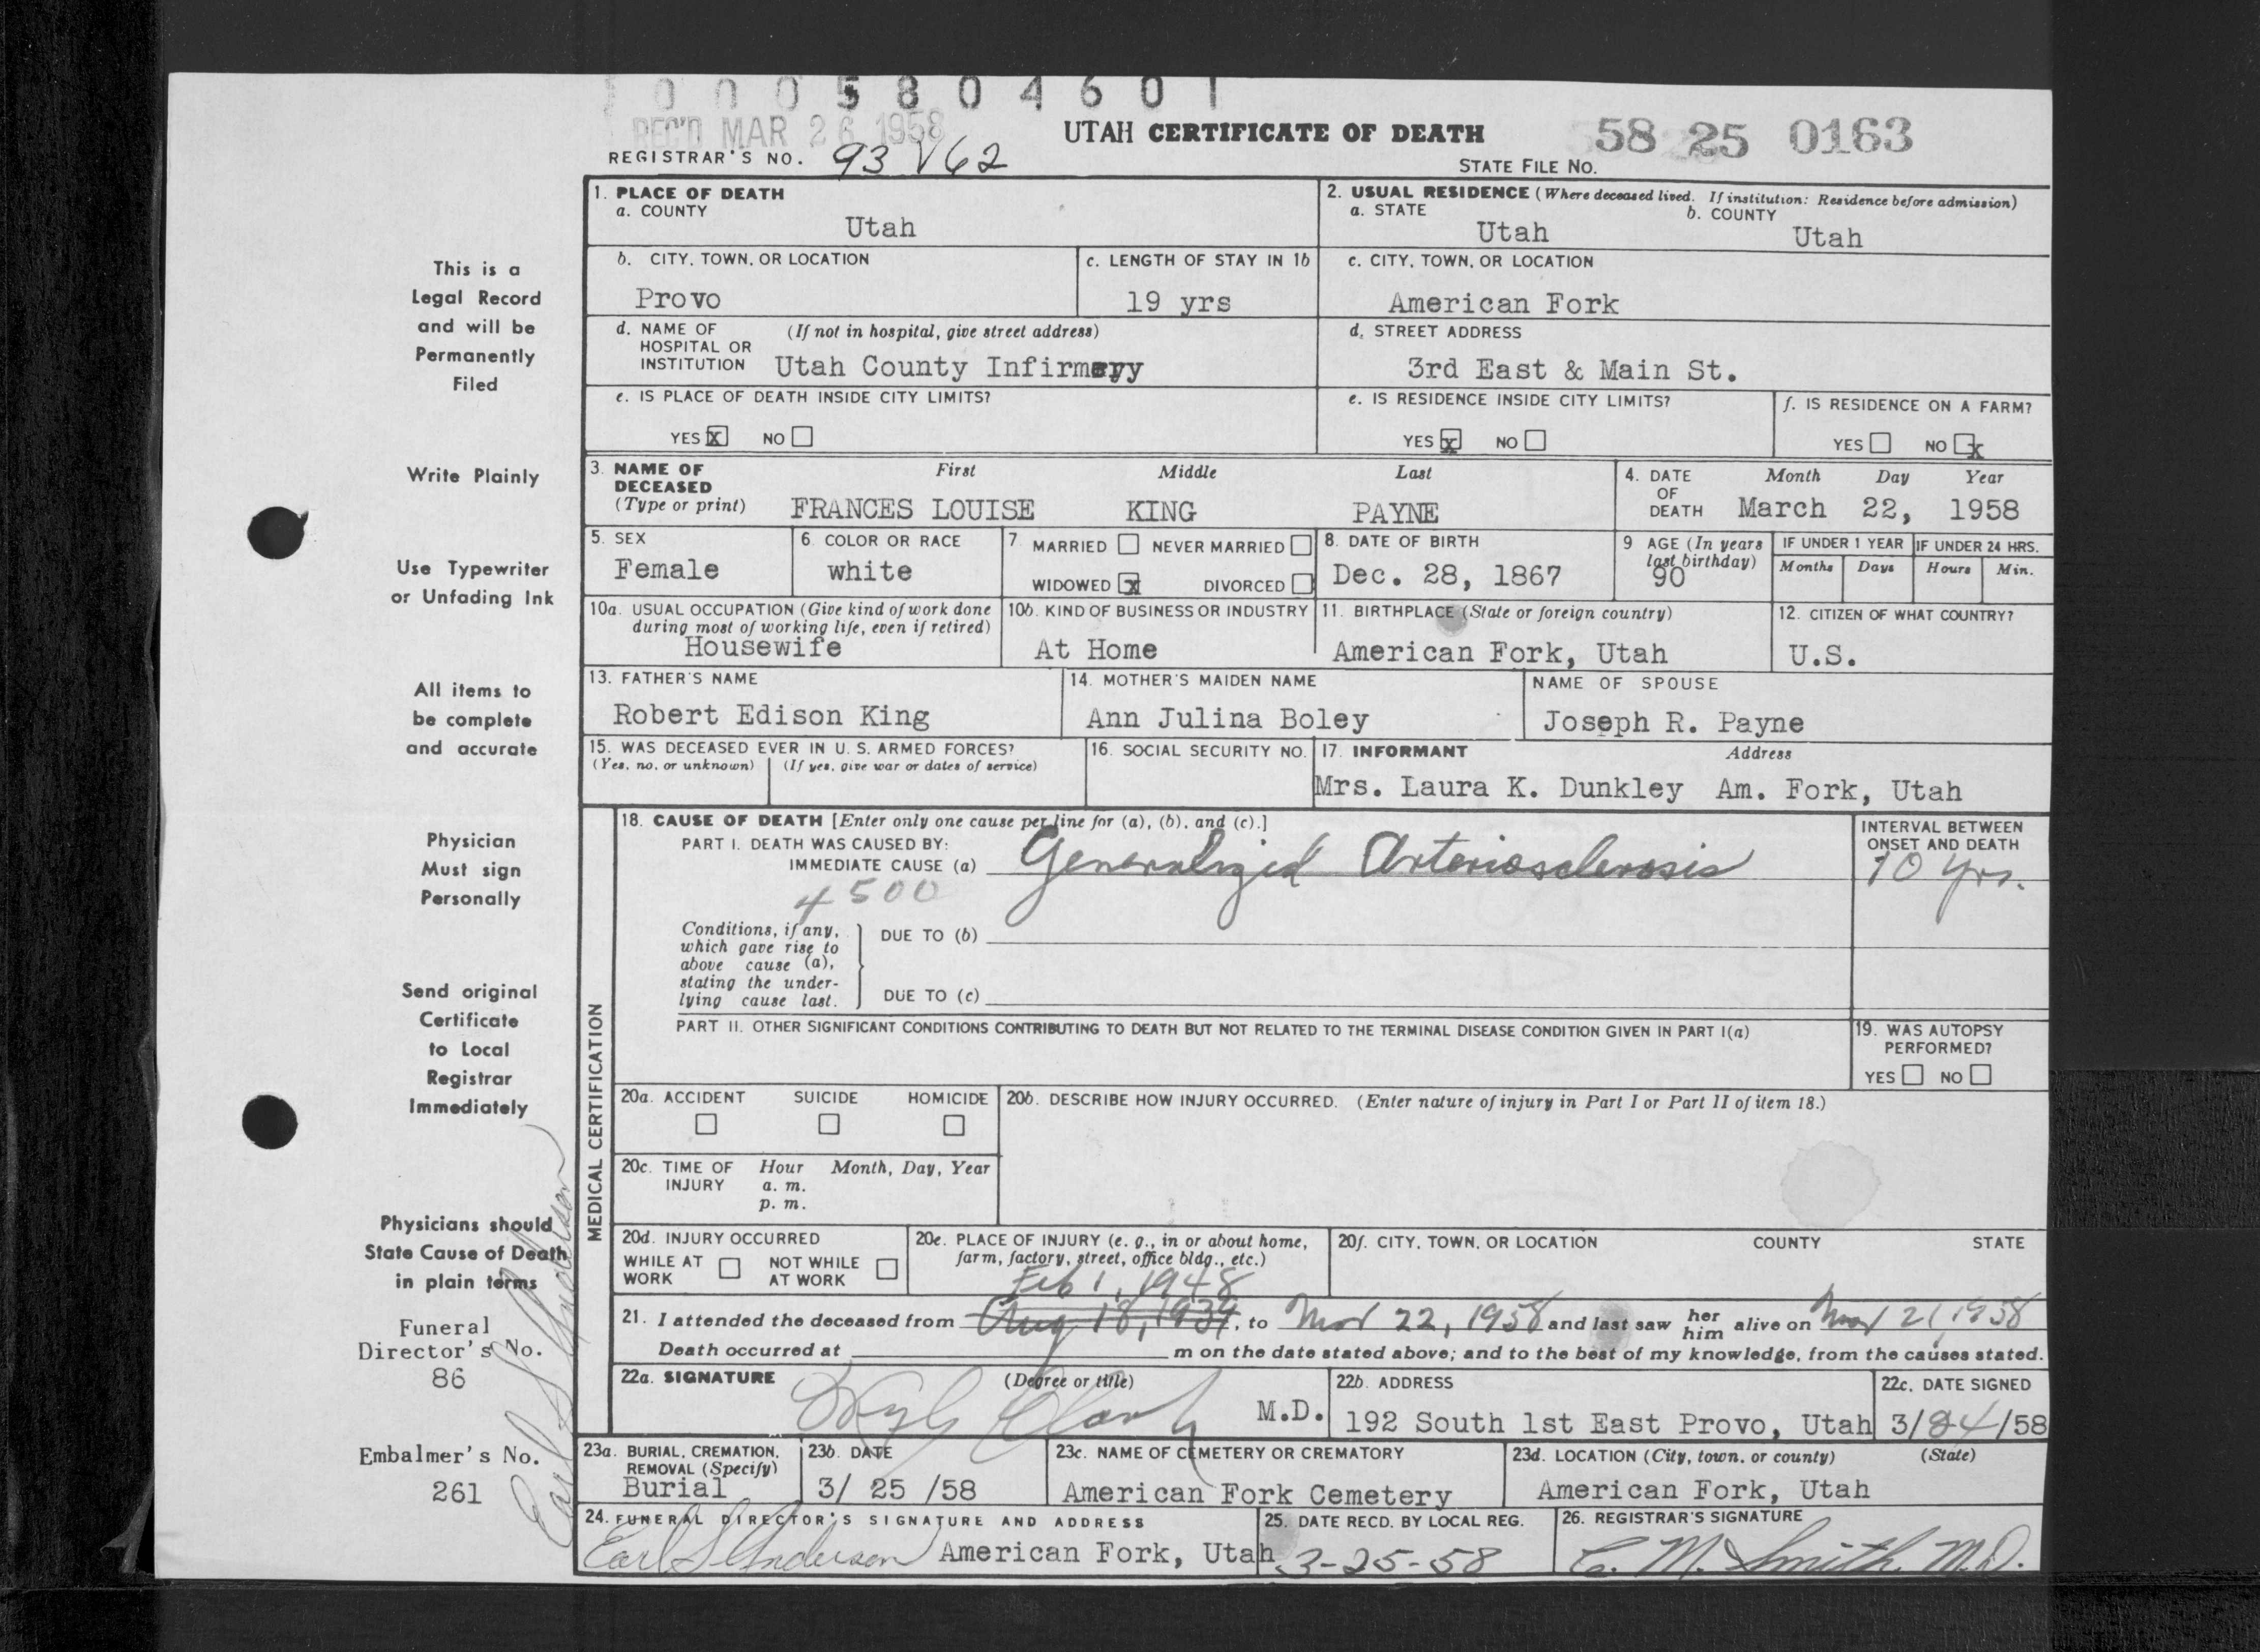 0 0 0 5 8 0 4 6 0 1
REC'D MAR 26 1958
UTAH CERTIFICATE OF DEATH
58 25 0163
REGISTRAR'S NO. 93 V62
STATE FILE NO.
1. PLACE OF DEATH
a. COUNTY
Utah
2. USUAL RESIDENCE (Where deceased lived. If institution: Residence before admission)
a. STATE
b. COUNTY
Utah
Utah
b. CITY, TOWN, OR LOCATION
Provo
c. LENGTH OF STAY IN 1b
19 yrs
c. CITY, TOWN, OR LOCATION
American Fork
d. NAME OF HOSPITAL OR INSTITUTION
(If not in hospital, give street address)
Utah County Infirmary
d. STREET ADDRESS
3rd East & Main St.
e. IS PLACE OF DEATH INSIDE CITY LIMITS?
YES X NO
e. IS RESIDENCE INSIDE CITY LIMITS?
YES X NO
f. IS RESIDENCE ON A FARM?
YES NO X
3. NAME OF DECEASED
(Type or print)
First Middle Last
FRANCES LOUISE KING PAYNE
4. DATE OF DEATH
Month Day Year
March 22, 1958
5. SEX
Female
6. COLOR OR RACE
white
7. MARRIED NEVER MARRIED
WIDOWED X DIVORCED
8. DATE OF BIRTH
Dec. 28, 1867
9 AGE (In years last birthday)
90
IF UNDER 1 YEAR
Months Days
IF UNDER 24 HRS.
Hours Min.
10a. USUAL OCCUPATION (Give kind of work done
during most of working life, even if retired)
Housewife
10b. KIND OF BUSINESS OR INDUSTRY
At Home
11. BIRTHPLACE (State or foreign country)
American Fork, Utah
12. CITIZEN OF WHAT COUNTRY?
U.S.
13. FATHER'S NAME
Robert Edison King
14. MOTHER'S MAIDEN NAME
Ann Julina Boley
NAME OF SPOUSE
Joseph R. Payne
15. WAS DECEASED EVER IN U. S. ARMED FORCES?
(Yes, no, or unknown) (If yes, give war or dates of service)
16. SOCIAL SECURITY NO.
17. INFORMANT Address
Mrs. Laura K. Dunkley Am. Fork, Utah
MEDICAL CERTIFICATION
18. CAUSE OF DEATH [Enter only one cause per line for (a), (b), and (c).]
PART I. DEATH WAS CAUSED BY:
IMMEDIATE CAUSE (a) Generalized Arteriosclerosis
4500
INTERVAL BETWEEN
ONSET AND DEATH
10 yrs.
Conditions, if any,
which gave rise to
above cause (a),
stating the under-
lying cause last.
DUE TO (b)
DUE TO (c)
PART II. OTHER SIGNIFICANT CONDITIONS CONTRIBUTING TO DEATH BUT NOT RELATED TO THE TERMINAL DISEASE CONDITION GIVEN IN PART I(a)
19. WAS AUTOPSY
PERFORMED?
YES NO
20a. ACCIDENT SUICIDE HOMICIDE
20b. DESCRIBE HOW INJURY OCCURRED. (Enter nature of injury in Part I or Part II of item 18.)
20c. TIME OF INJURY
Hour Month, Day, Year
a. m.
p. m.
20d. INJURY OCCURRED
WHILE AT WORK
NOT WHILE AT WORK
20e. PLACE OF INJURY (e. g., in or about home,
farm, factory, street, office bldg., etc.)
20f. CITY, TOWN, OR LOCATION COUNTY STATE
Feb 1, 1948
21. I attended the deceased from Aug 18, 1939, to Mar 22, 1958 and last saw her him alive on Mar 21, 1958
Death occurred at m on the date stated above; and to the best of my knowledge, from the causes stated.
22a. SIGNATURE (Degree or title)
Clark M.D.
22b. ADDRESS
192 South 1st East Provo, Utah
22c. DATE SIGNED
3/24/58
23a. BURIAL, CREMATION,
REMOVAL (Specify)
Burial
23b. DATE
3/ 25 /58
23c. NAME OF CEMETERY OR CREMATORY
American Fork Cemetery
23d. LOCATION (City, town, or county) (State)
American Fork, Utah
24. FUNERAL DIRECTOR'S SIGNATURE AND ADDRESS
Earl S Anderson American Fork, Utah
25. DATE RECD. BY LOCAL REG.
3-25-58
26. REGISTRAR'S SIGNATURE
C. M. Smith, M.D.
This is a
Legal Record
and will be
Permanently
Filed
Write Plainly
Use Typewriter
or Unfading Ink
All items to
be complete
and accurate
Physician
Must sign
Personally
Send original
Certificate
to Local
Registrar
Immediately
Physicians should
State Cause of Death
in plain terms
Funeral
Director's No.
86
Embalmer's No.
261
Earl S Anderson